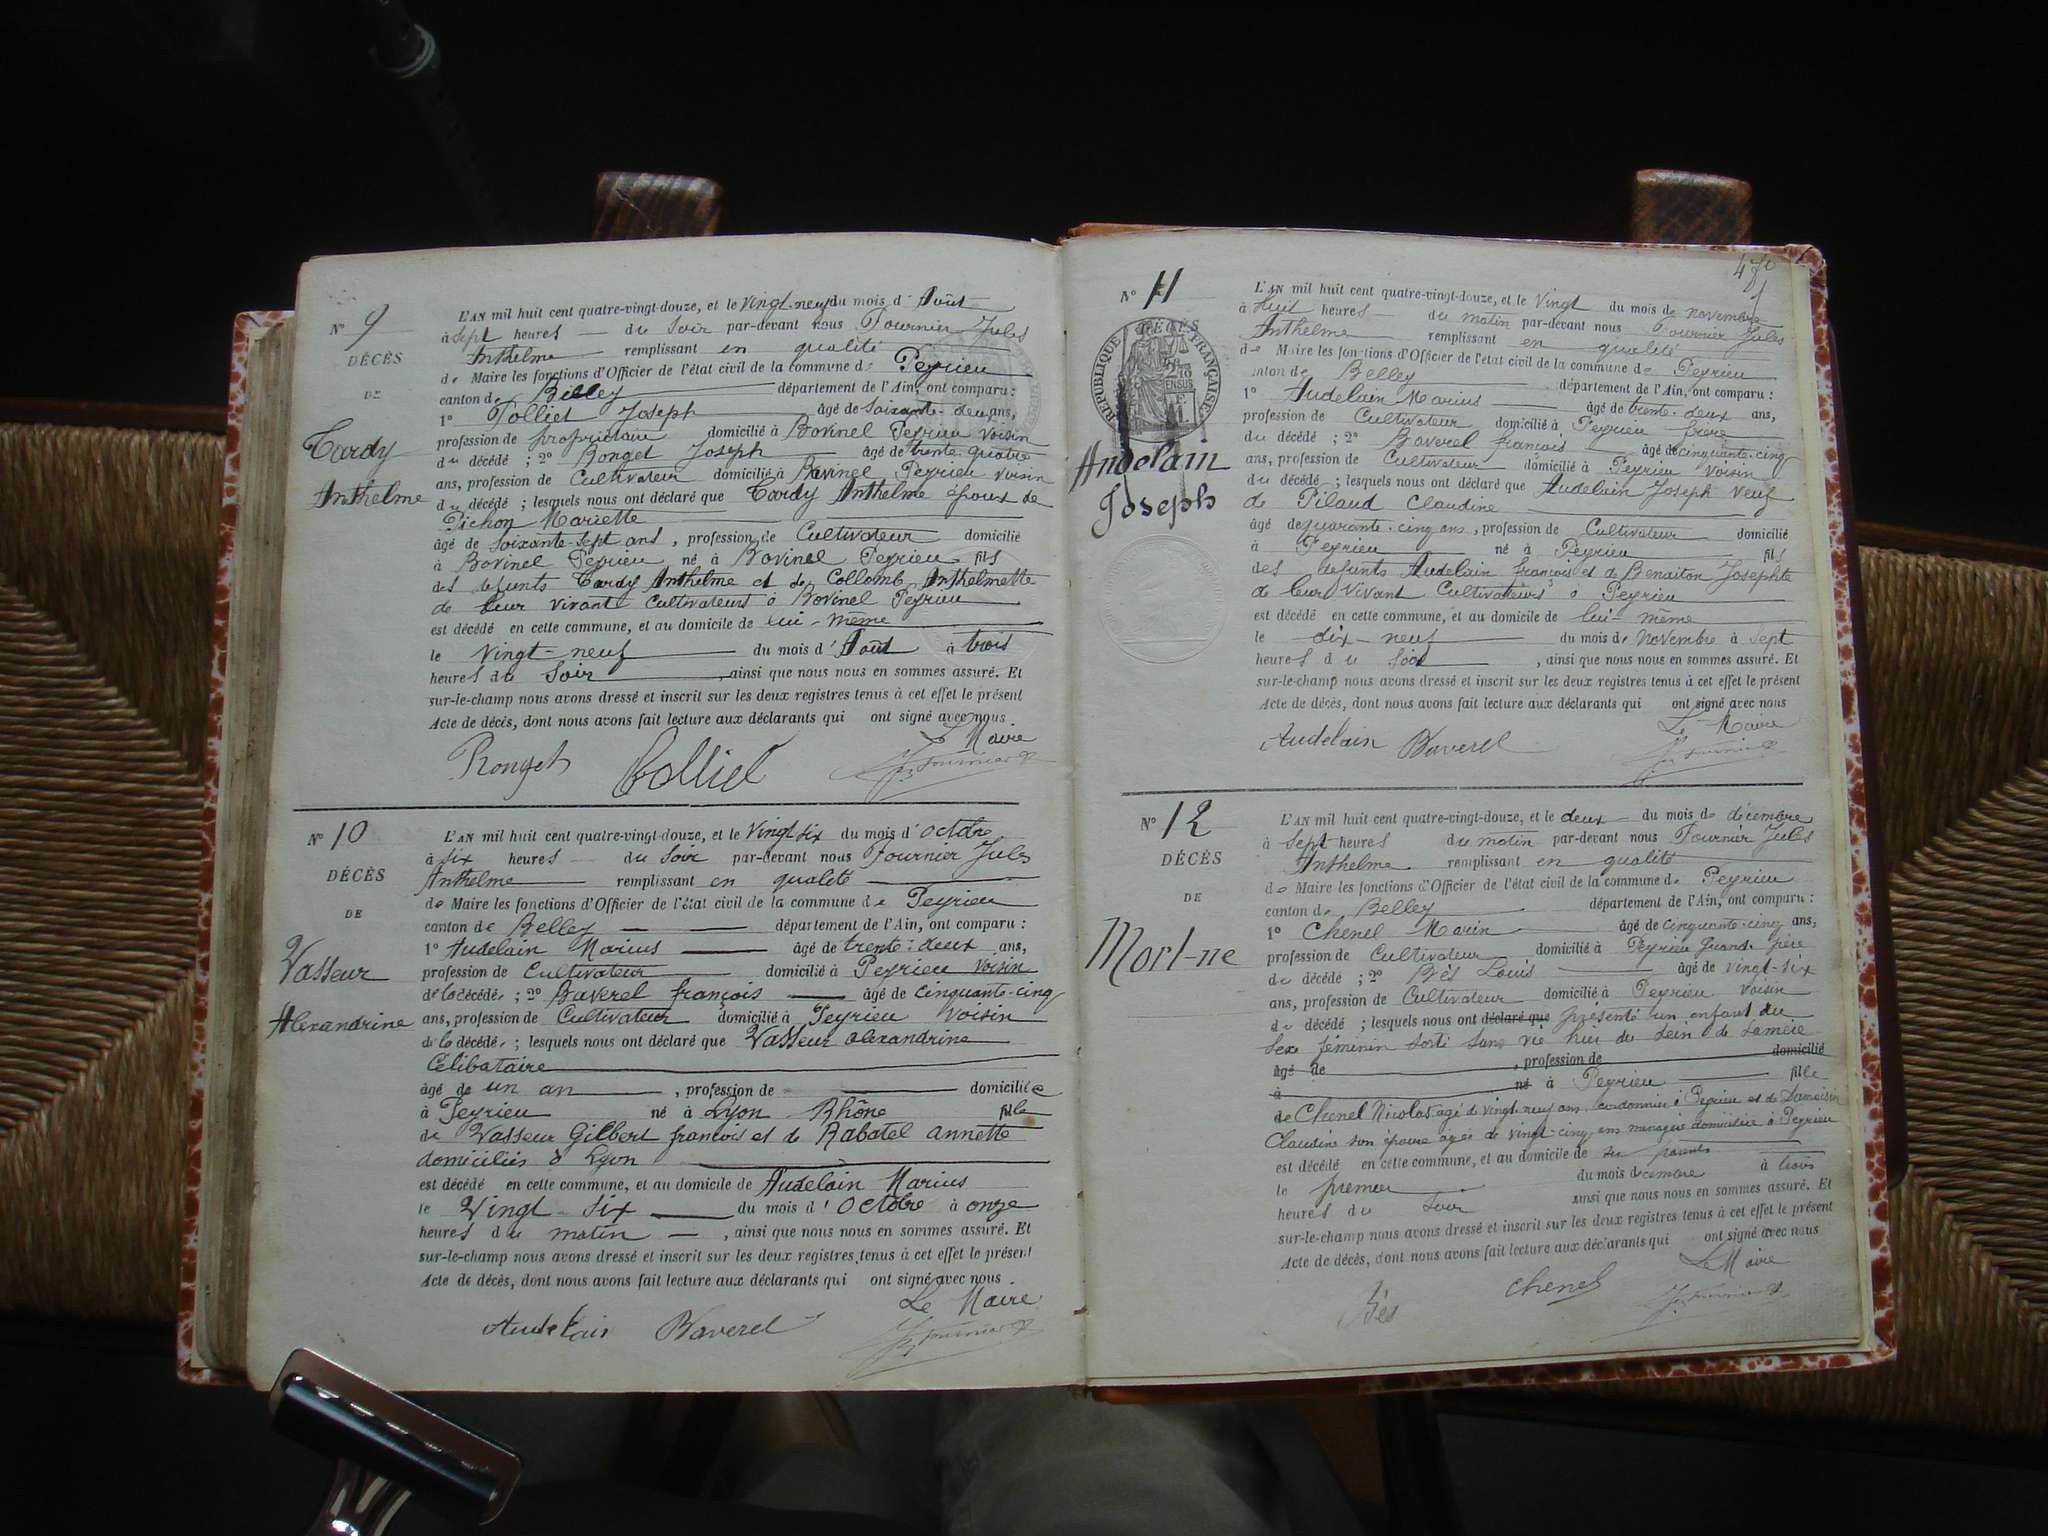 N° 9
DÉCÈS
DE
Tardy
Anthelme
L'AN mil huit cent quatre-vingt-douze, et le Vingt-neuf du mois d'Août
à sept heures du Soir par-devant nous Fournier Jules
Anthelme remplissant en qualité
de Maire les fonctions d'Officier de l'état civil de la commune de Peyrieu
canton de Belley département de l'Ain, ont comparu :
1° Tolliet Joseph âgé de soixante-deux ans,
profession de propriétaire domicilié à Bovinel Peyrieu voisin
du décédé ; 2° Rouget Joseph âgé de trente-quatre
ans, profession de Cultivateur domicilié à Bovinel Peyrieu voisin
du décédé ; lesquels nous ont déclaré que Tardy Anthelme époux de
Pichon Mariette
âgé de soixante-sept ans, profession de Cultivateur domicilié
à Bovinel Peyrieu né à Bovinel Peyrieu fils
des defunts Tardy Anthelme et de Collomb Anthelmette
de leur vivant Cultivateurs à Bovinel Peyrieu
est décédé en cette commune, et au domicile de lui-même
le Vingt-neuf du mois d'Août à trois
heures du Soir, ainsi que nous nous en sommes assuré. Et
sur-le-champ nous avons dressé et inscrit sur les deux registres tenus à cet effet le présent
Acte de décès, dont nous avons fait lecture aux déclarants qui ont signé avec nous.
Le Maire
Rouget Tolliet J. Fournier
N° 10
DÉCÈS
DE
Vasseur
Alexandrine
L'AN mil huit cent quatre-vingt-douze, et le Vingt six du mois d'octobre
à six heures du Soir par-devant nous Fournier Jules
Anthelme remplissant en qualité
de Maire les fonctions d'Officier de l'état civil de la commune de Peyrieu
canton de Belley département de l'Ain, ont comparu :
1° Audelain Marius âgé de trente-deux ans,
profession de Cultivateur domicilié à Peyrieu voisin
de la décédée ; 2° Baverel françois âgé de cinquante-cinq
ans, profession de Cultivateur domicilié à Peyrieu voisin
de la décédée ; lesquels nous ont déclaré que Vasseur alexandrine
Célibataire
âgé de un an, profession de domiciliée
à Peyrieu né à Lyon Rhône fille
de Vasseur Gilbert françois et de Rabatel annette
domiciliés à Lyon
est décédé en cette commune, et au domicile de Audelain Marius
le Vingt-six du mois d'octobre à onze
heures du matin, ainsi que nous nous en sommes assuré. Et
sur-le-champ nous avons dressé et inscrit sur les deux registres tenus à cet effet le présent
Acte de décès, dont nous avons fait lecture aux déclarants qui ont signé avec nous.
Le Maire
Audelain Baverel J. Fournier
N° 11
DÉCÈS
RÉPUBLIQUE FRANÇAISE
Audelain
Joseph
L'AN mil huit cent quatre-vingt-douze, et le Vingt du mois de novembre
à huit heures du matin par-devant nous Fournier Jules
Anthelme remplissant en qualité
de Maire les fonctions d'Officier de l'état civil de la commune de Peyrieu
canton de Belley département de l'Ain, ont comparu :
1° Audelain Marius âgé de trente-deux ans,
profession de Cultivateur domicilié à Peyrieu frère
du décédé ; 2° Baverel françois âgé de cinquante-cinq
ans, profession de Cultivateur domicilié à Peyrieu voisin
du décédé ; lesquels nous ont déclaré que Audelain Joseph veuf
de Pilaud Claudine
âgé de quarante-cinq ans, profession de Cultivateur domicilié
à Peyrieu né à Peyrieu fils
des defunts Audelain françois et de Benaiton Josephte
de leur vivant Cultivateurs à Peyrieu
est décédé en cette commune, et au domicile de lui-même
le dix-neuf du mois de novembre à sept
heures du soir, ainsi que nous nous en sommes assuré. Et
sur-le-champ nous avons dressé et inscrit sur les deux registres tenus à cet effet le présent
Acte de décès, dont nous avons fait lecture aux déclarants qui ont signé avec nous
Le Maire
Audelain Baverel J. Fournier
N° 12
DÉCÈS
DE
Mort-ne
L'AN mil huit cent quatre-vingt-douze, et le deux du mois de décembre
à sept heures du matin par-devant nous Fournier Jules
Anthelme remplissant en qualité
de Maire les fonctions d'Officier de l'état civil de la commune de Peyrieu
canton de Belley département de l'Ain, ont comparu :
1° Chenel Marin âgé de cinquante-cinq ans,
profession de Cultivateur domicilié à Peyrieu grand-père
du décédé ; 2° Bés Louis âgé de vingt-six
ans, profession de Cultivateur domicilié à Peyrieu voisin
du décédé ; lesquels nous ont déclaré que présenté un enfant du
sexe féminin sorti sans vie hier du sein de sa mère
âgé de , profession de domicilié
à né à Peyrieu fille
de Chenel Nicolas âgé de vingt-neuf ans cordonnier à Peyrieu et de Damaisin
Claudine son épouse âgée de vingt-cinq ans ménagère domiciliée à Peyrieu
est décédé en cette commune, et au domicile de ses parents
le premier du mois décembre à trois
heures du soir ainsi que nous nous en sommes assuré. Et
sur-le-champ nous avons dressé et inscrit sur les deux registres tenus à cet effet le présent
Acte de décès, dont nous avons fait lecture aux déclarants qui ont signé avec nous
Le Maire
Bés Chenel J. Fournier